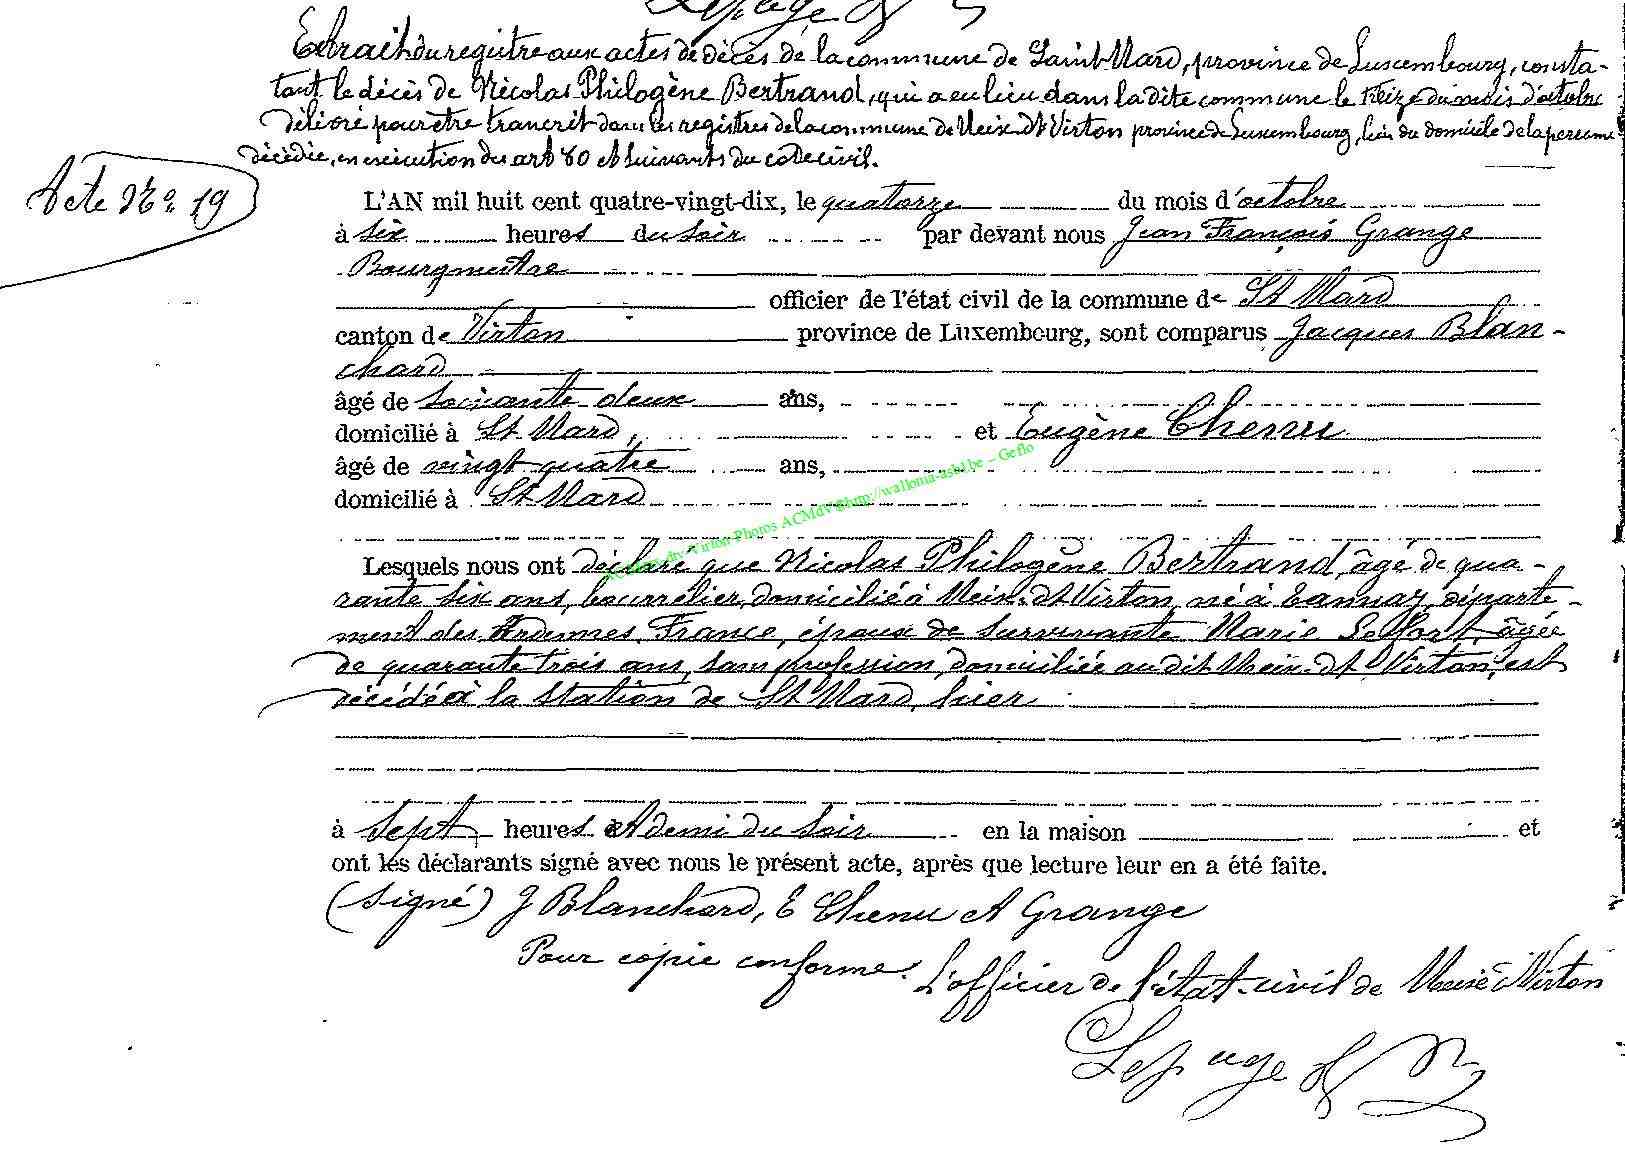 Lepage
Extrait du registre aux actes de décès de la commune de Saint Mard, province de Luxembourg, consta-
tant le décès de Nicolas Philogène Bertrand, qui a eu lieu dans la dite commune le treize du mois d'octobre
délivré pour être trancrit dans les registres de la commune de Meix dt Virton province de Luxembourg, lieu du domicile de la personne
décédée, en exécution des art 80 et suivants du code civil.
Acte No. 19
L'AN mil huit cent quatre-vingt-dix, le quatorze du mois d'octobre
à six heures du soir par devant nous Jean François Grange
Bourgmestre
officier de l'état civil de la commune de St Mard
canton de Virton province de Luxembourg, sont comparus Jacques Blan-
chard
âgé de soixante deux ans,
domicilié à St Mard, et Eugène Chenu
âgé de vingt quatre ans,
domicilié à St Mard
Virton Photos ACMdV http://wallonia-asbl.be - Geflo
Lesquels nous ont déclaré que Nicolas Philogène Bertrand, âgé de qua-
rante six ans, bourrelier, domicilié à Meix-dt Virton, né à Tannay, départe-
ment des Ardennes, France, époux de survivante Marie Lefort, âgée
de quarante trois ans, sans profession, domiciliée au dit Meix-dt Virton, est
décédé à la station de St Mard, hier
à sept heures et demi du soir en la maison et
ont les déclarants signé avec nous le présent acte, après que lecture leur en a été faite.
(signé) J Blanchard, E Chenu et Grange
Pour copie conforme.
L'officier de l'état-civil de Meix dt Virton
Lepage